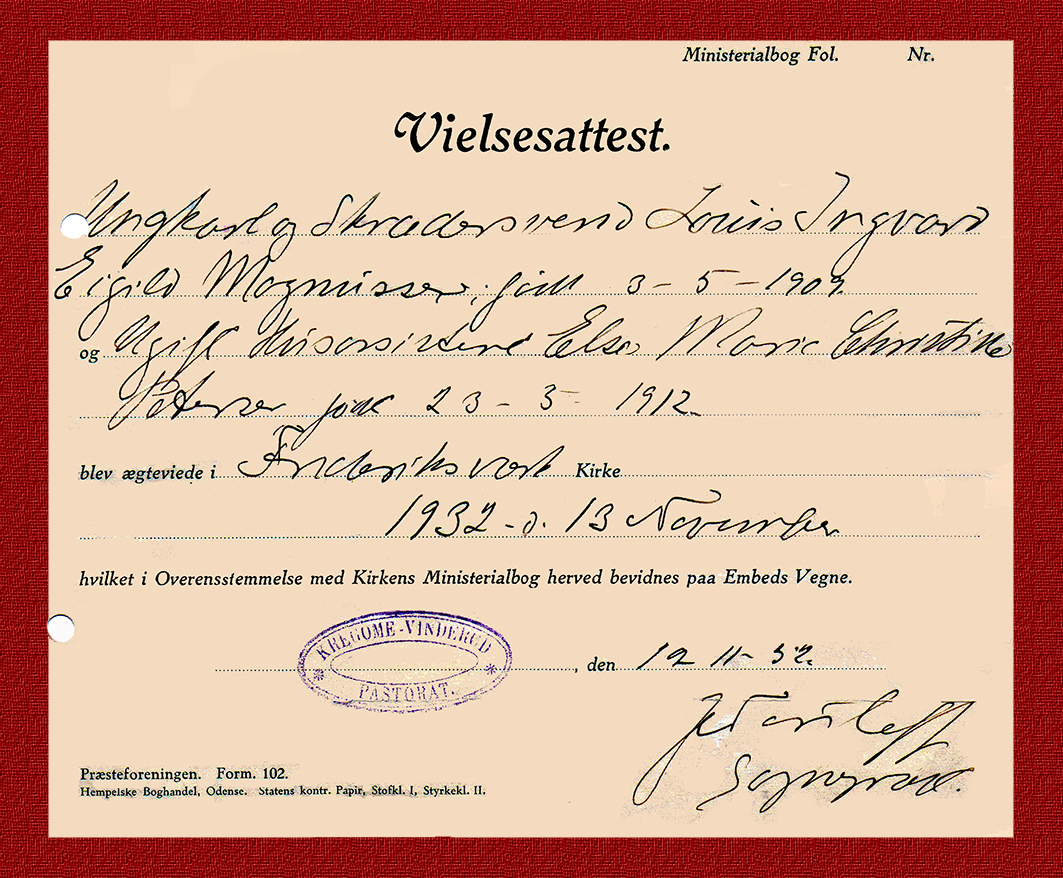 Ministerialbog Fol. Nr.
Vielsesattest.
Ungkarl og Skrædersvend Louis Ingvard
Eigild Magnussen, født 3-5-1909.
og Ugift Husassistent Else Marie Christine
Petersen født 23-5-1912.
blev ægteviede i Frederiksværk Kirke
1932 - d. 13 November
hvilket i Overensstemmelse med Kirkens Ministerialbog herved bevidnes paa Embeds Vegne.
KREGOME-VINDERUD
PASTORAT.
, den 19 11-32.
Sognepræst.
Præsteforeningen. Form. 102.
Hempelske Boghandel, Odense. Statens kontr. Papir, Stofkl. I, Styrkekl. II.